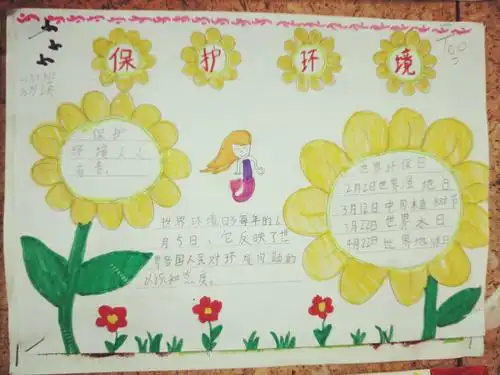 保护环境
100
"保护
环境人人
有责。
世界环境日为每年的6
月5日，它反映了世
界各国人民对环境问题的
认识和态度。
世界环保日
2月2日世界湿地日
3月12日中国植树节
3月22日世界水日
4月22日世界地球日